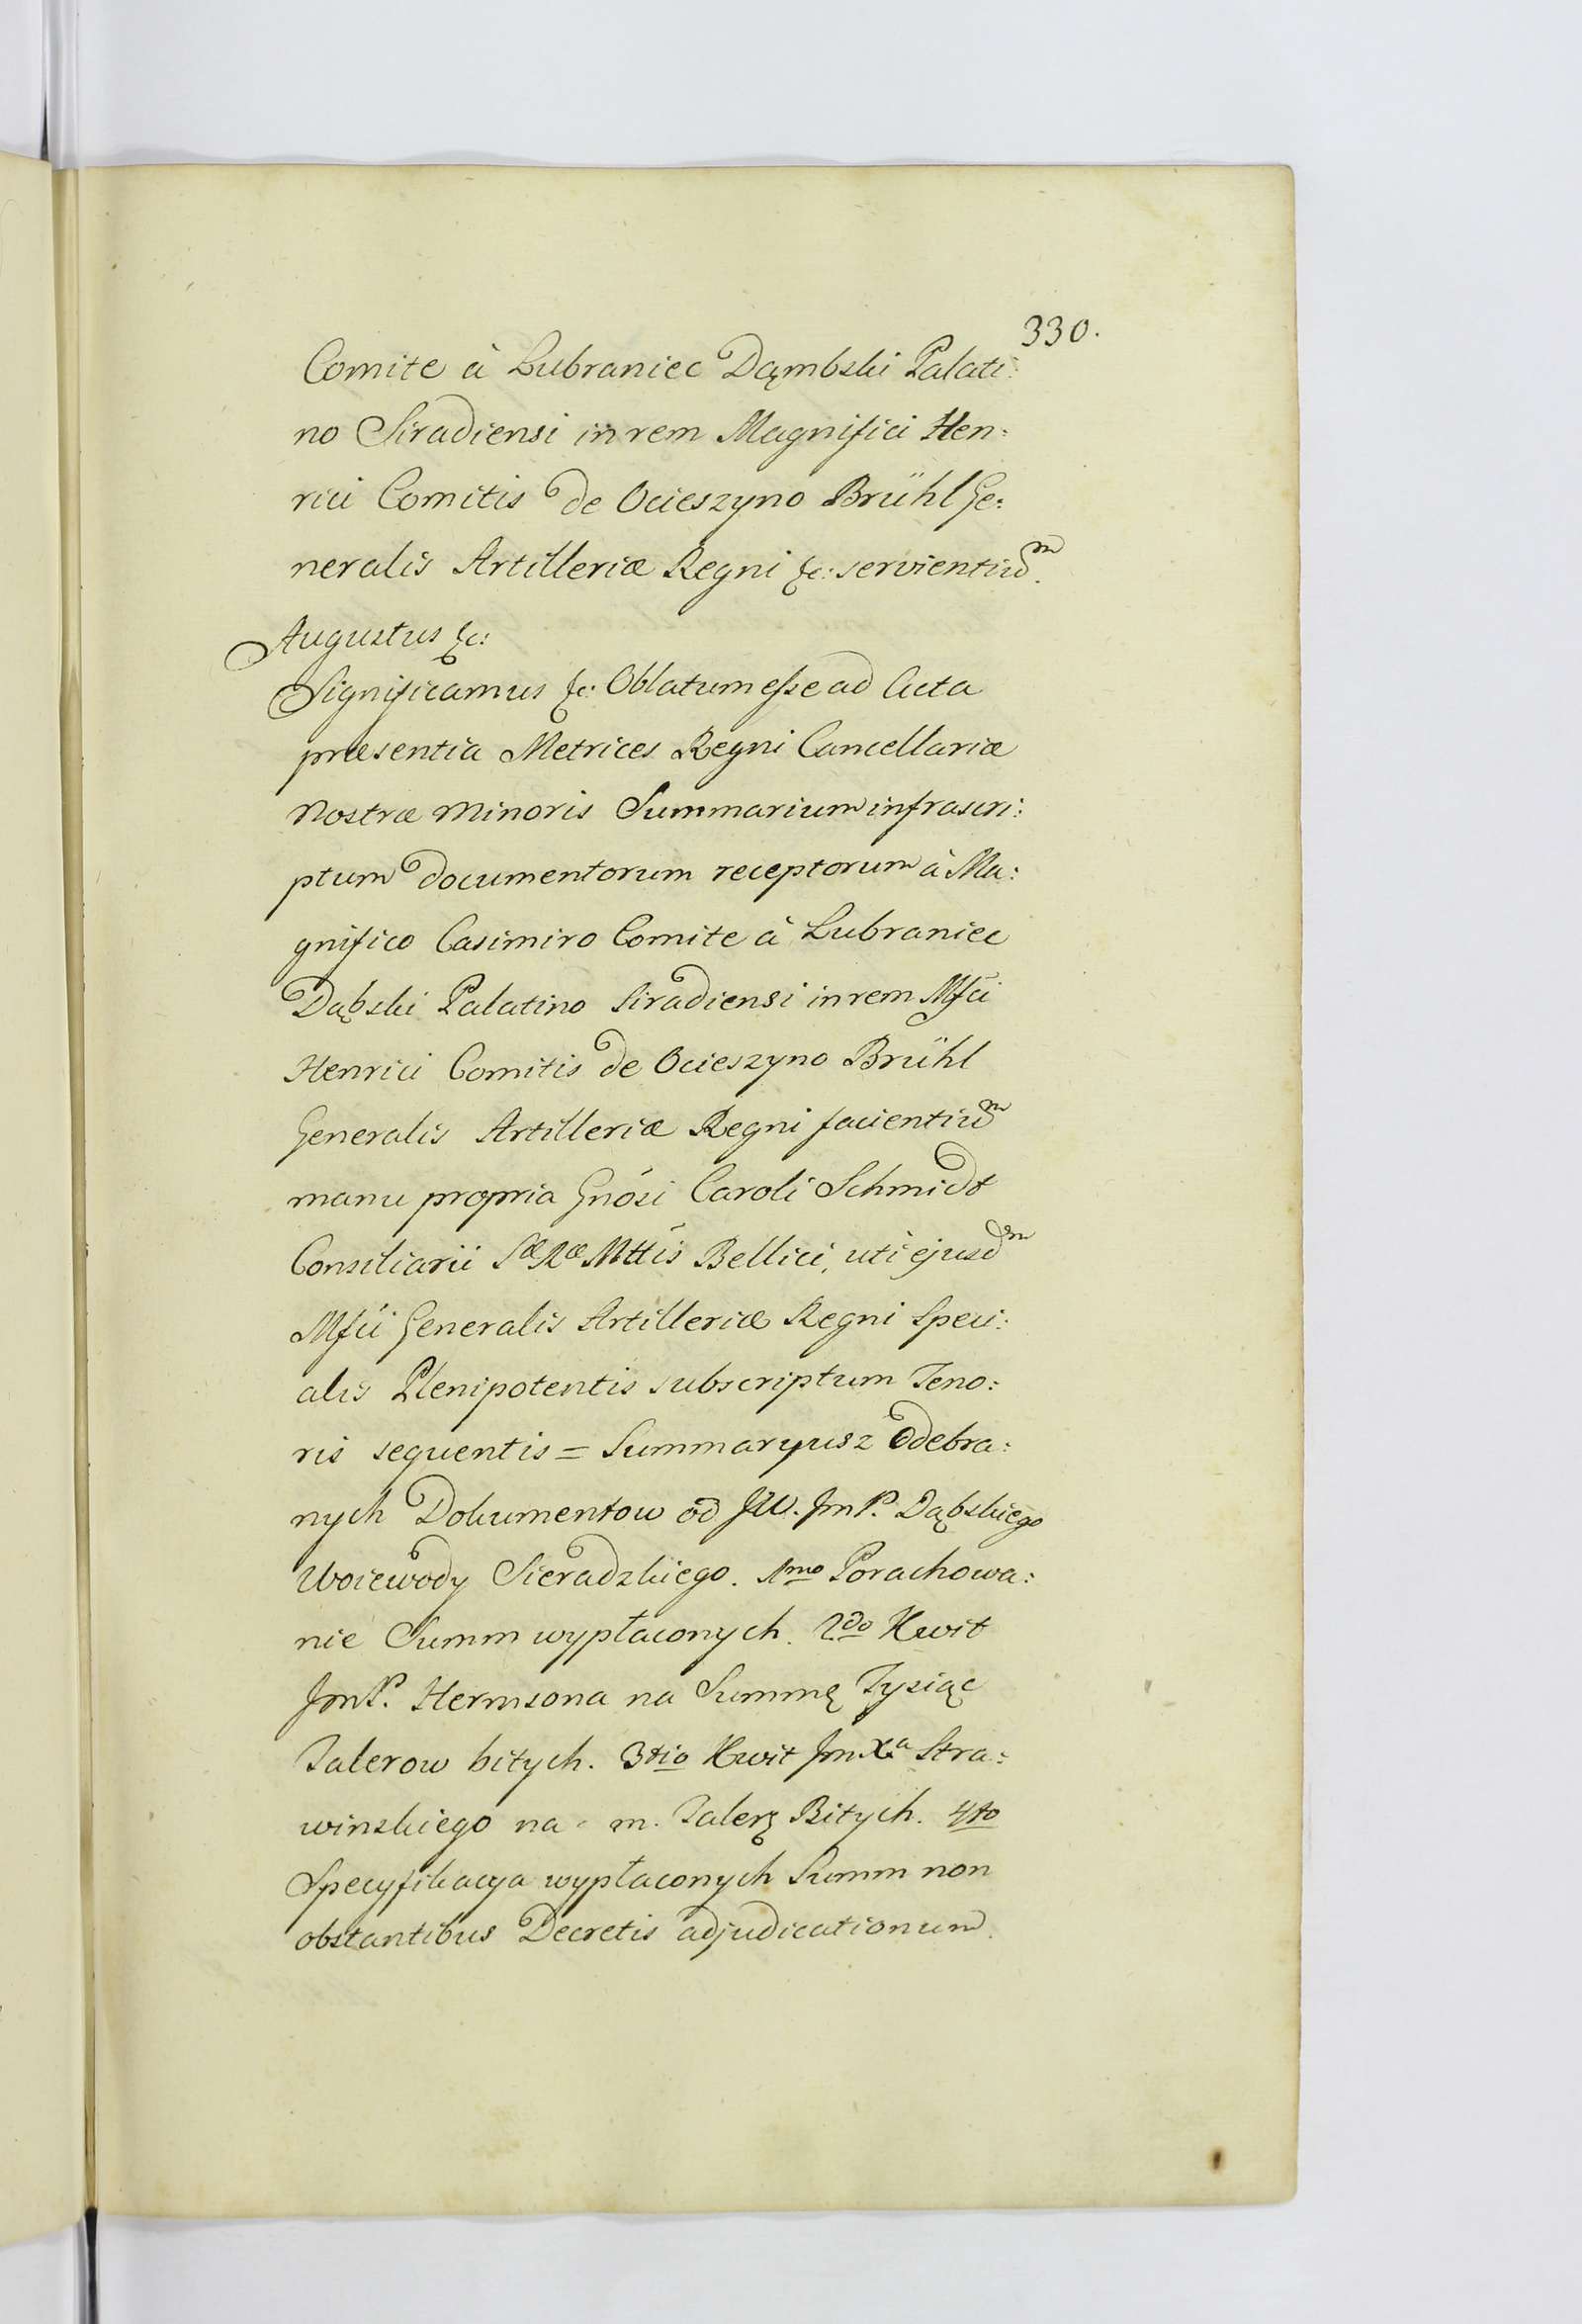 330.
Comite à Lubraniec Dąmbski Palati:
no Siradiensi in rem Magnifici Hen:
rici Comitis de Ocieszyno Brühl Ge:
neralis Artilleriæ Regni &c: servientiũm.
Augustus &c:
Significamus &c: Oblatum esse ad Acta
præsentia Metrices Regni Cancellariæ
Nostræ Minoris Summarium infrascri:
ptum documentorum receptorum à Ma:
gnifico Casimiro Comite à Lubraniec
Dąbski Palatino Siradiensi in rem Mfci
Henrici Comitis de Ocieszyno Brühl
Generalis Artilleriæ Regni facientiũm
manu propria Gnősi Caroli Schmidt
Consiliarii Sæ Ræ Mttis Bellici, uti ejusdm
Mfci Generalis Artilleriæ Regni Speci:
alis Plenipotentis subscriptum Teno:
ris sequentis = Summaryusz Odebra:
nych Dokumentow od JW. JmP. Dąbskiego
Woiewody Sieradzkiego. 1mo Porachowa:
nie Summ wypłaconych. 2do Kwit
JmP. Hermsona na Summę Tysiąc
Talerow bitych. 3tio Kwit JmXa Stra:
winskiego na m. Talerę Bitych. 4to
Specyfikacya wypłaconych Summ non
obstantibus Decretis adjudicationum.